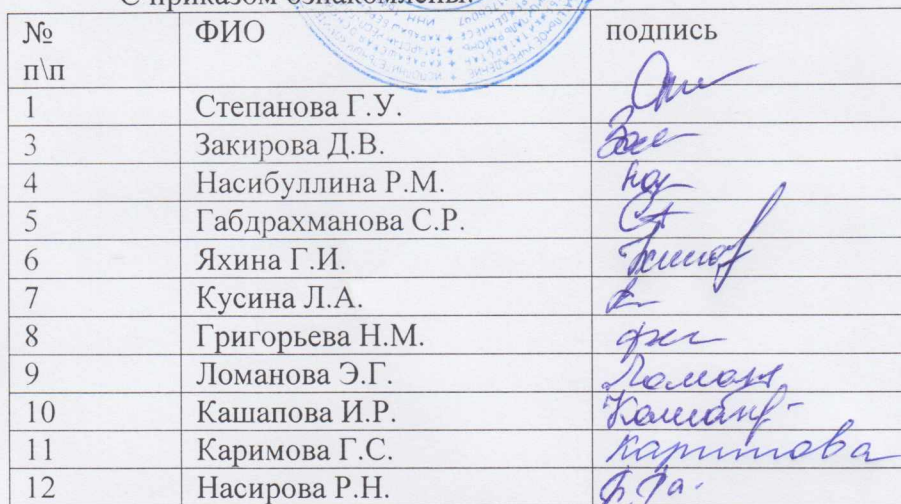 С приказом ознакомлены:
№ п\п ФИО подпись
1 Степанова Г.У.
3 Закирова Д.В.
4 Насибуллина Р.М.
5 Габдрахманова С.Р.
6 Яхина Г.И.
7 Кусина Л.А.
8 Григорьева Н.М.
9 Ломанова Э.Г.
10 Кашапова И.Р.
11 Каримова Г.С. Каримова
12 Насирова Р.Н.